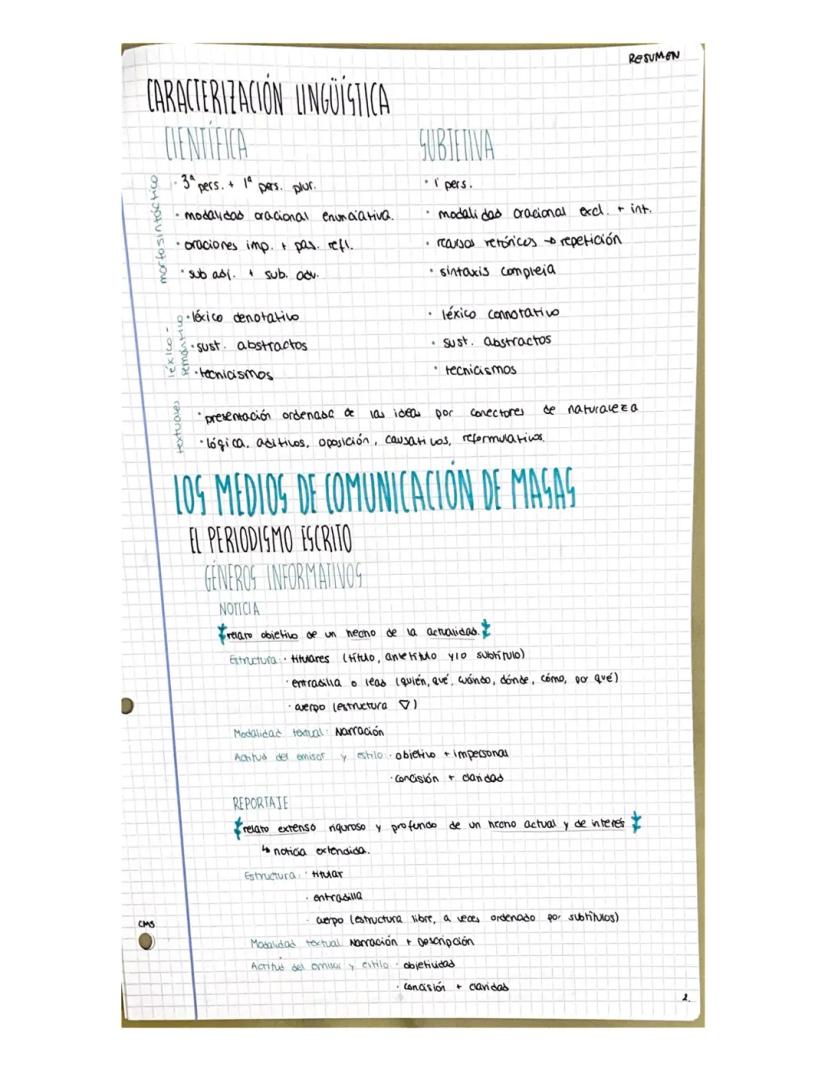 RESUMEN
CARACTERIZACIÓN LINGÜÍSTICA
CIENTÍFICA
SUBJETIVA
morfosintáctico
· 3ª pers. + 1ª pers. plur.
· 1ª pers.
· modalidad oracional enunciativa.
· modalidad oracional excl. + int.
· oraciones imp. + pas. refl.
· recursos retóricos → repetición
· sub adj. + sub. adv.
· sintaxis compleja
léxico - semántico
· léxico denotativo
· léxico connotativo
· sust. abstractos
· sust. abstractos
· tecnicismos
· tecnicismos
textuales
· presentación ordenada de las ideas por conectores de naturaleza
· lógica. aditivos, oposición, causativos, reformulativos.
LOS MEDIOS DE COMUNICACIÓN DE MASAS
EL PERIODISMO ESCRITO
GÉNEROS INFORMATIVOS
NOTICIA
relato objetivo de un hecho de la actualidad.
Estructura: · titulares (título, antetítulo y/o subtítulo)
· entradilla o lead (quién, qué, cuándo, dónde, cómo, por qué)
· cuerpo (estructura ▽)
Modalidad textual: Narración
Actitud del emisor y estilo: · objetivo + impersonal
· concisión + claridad
REPORTAJE
relato extenso riguroso y profundo de un hecho actual y de interés
↳ noticia extendida.
Estructura: · titular
· entradilla
· cuerpo (estructura libre, a veces ordenado por subtítulos)
Modalidad textual: Narración + Descripción
Actitud del emisor y estilo: · objetividad
· concisión + claridad
CMS
2.